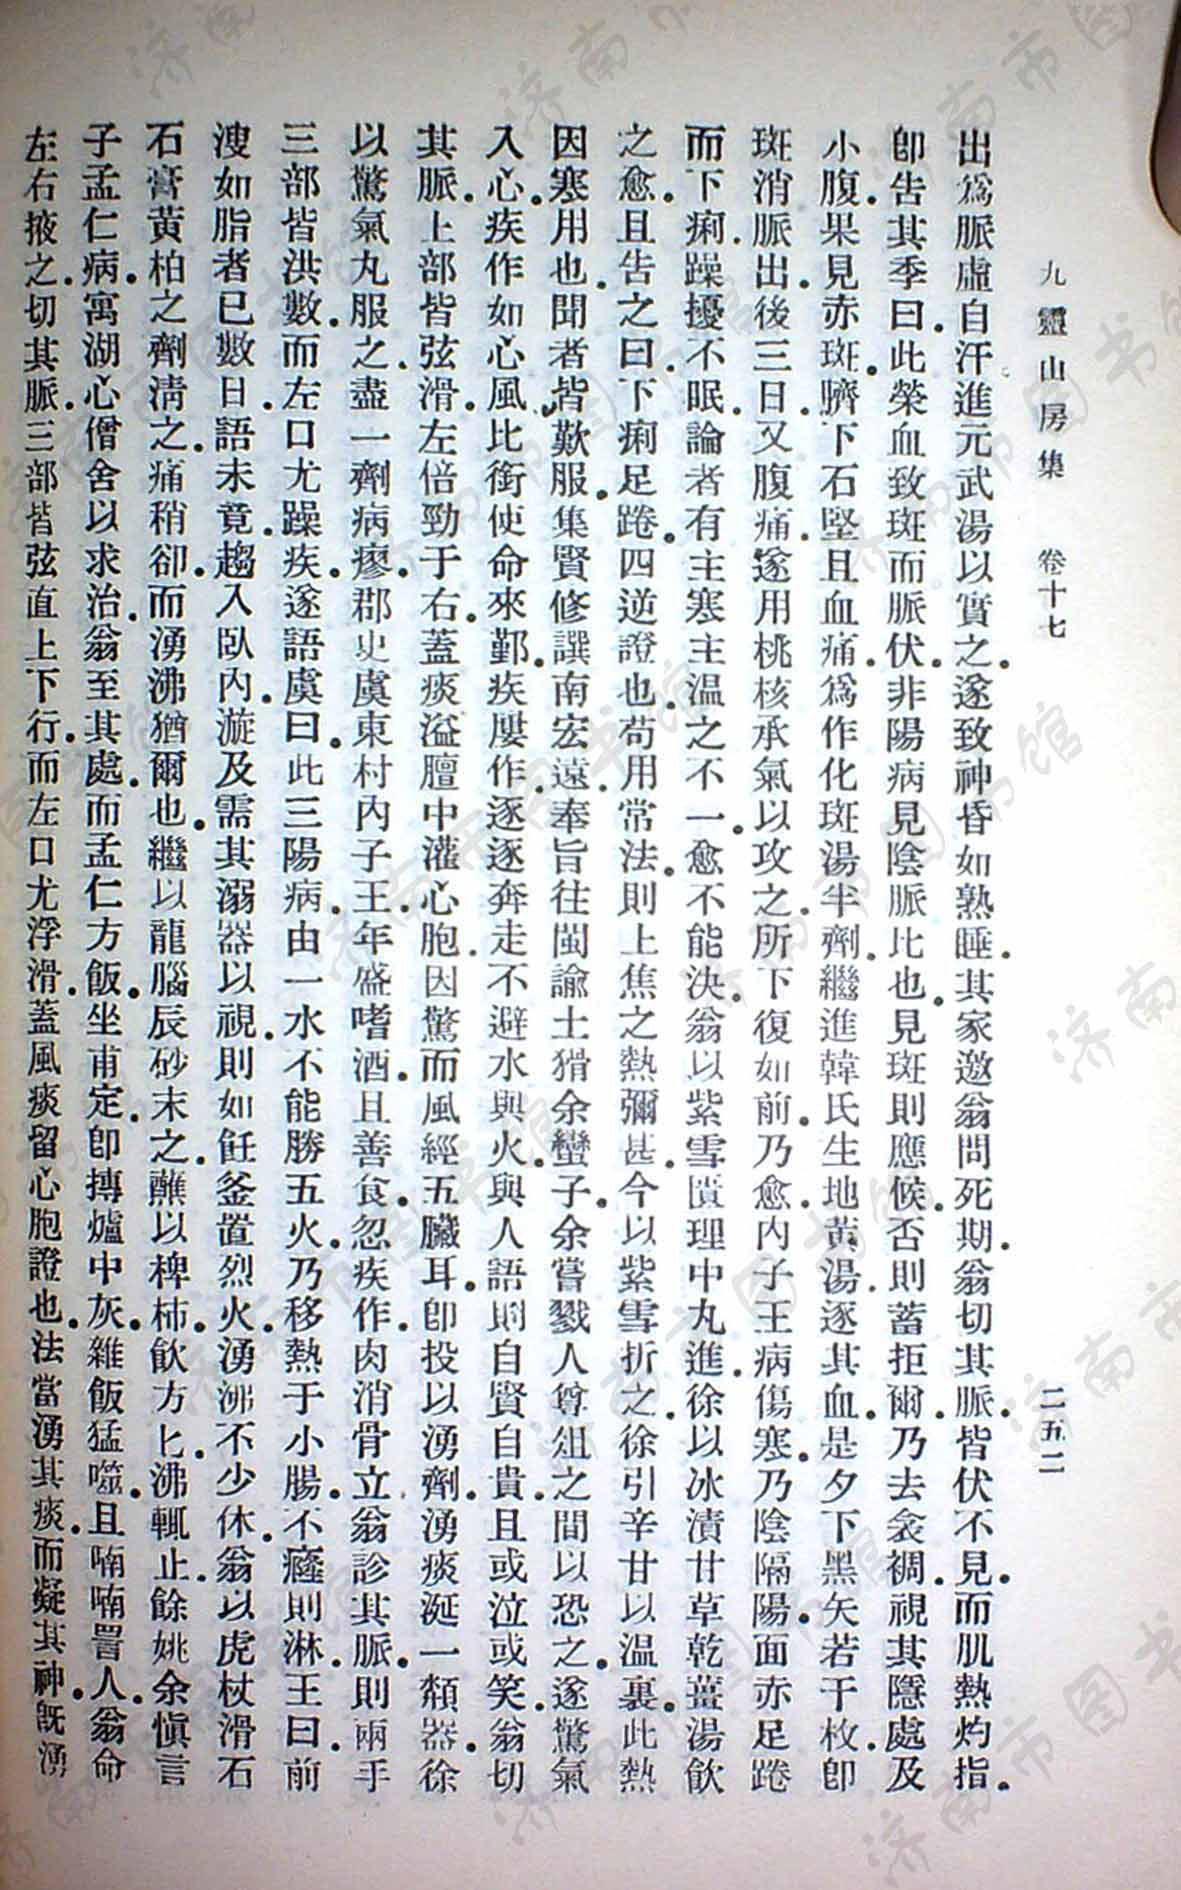 九靈山房集　卷十七　二五二
出爲脈虛自汗進元武湯以實之遂致神昏如熟睡其家邀翁問死期翁切其脈皆伏不見而肌熱灼指
卽告其季曰此榮血致斑而脈伏非陽病見陰脈比也見斑則應候否則蓄拒爾乃去衾裯視其隱處及
小腹果見赤斑臍下石堅且血痛爲作化斑湯半劑繼進韓氏生地黃湯逐其血是夕下黑矢若干枚卽
斑消脈出後三日又腹痛遂用桃核承氣以攻之所下復如前乃愈內子王病傷寒乃陰隔陽面赤足踡
而下痢躁擾不眠論者有主寒主溫之不一愈不能決翁以紫雪匱理中丸進徐以冰漬甘草乾薑湯飮
之愈且告之曰下痢足踡四逆證也苟用常法則上焦之熱彌甚今以紫雪折之徐引辛甘以溫裏此熱
因寒用也聞者皆歎服集賢修譔南宏遠奉旨往閩諭土猾余蠻子余嘗戮人尊俎之間以恐之遂驚氣
入心疾作如心風比銜使命來鄞疾屢作逐逐奔走不避水與火與人語則自賢自貴且或泣或笑翁切
其脈上部皆弦滑左倍勁于右蓋痰溢膻中灌心胞因驚而風經五臟耳卽投以湧劑湧痰涎一纇器徐
以驚氣丸服之盡一劑病瘳郡史虞東村內子王年盛嗜酒且善食忽疾作肉消骨立翁診其脈則兩手
三部皆洪數而左口尤躁疾遂語虞曰此三陽病由一水不能勝五火乃移熱于小腸不癃則淋王曰前
溲如脂者已數日語未竟趨入臥內漩及需其溺器以視則如飪釜置烈火湧沸不少休翁以虎杖滑石
石膏黃柏之劑淸之痛稍卻而湧沸猶爾也繼以龍腦辰砂末之蘸以椑柿飮方匕沸輒止餘姚余愼言
子孟仁病寓湖心僧舍以求治翁至其處而孟仁方飯坐甫定卽摶爐中灰雜飯猛噬且喃喃詈人翁命
左右掖之切其脈三部皆弦直上下行而左口尤浮滑蓋風痰留心胞證也法當湧其痰而凝其神旣湧